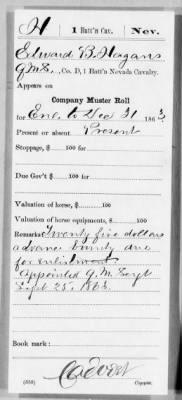 H | 1 Batt'n Cav. | Nev.
Edward B. Hagans
Q.M.S., Co. D, 1 Batt'n Nevada Cavalry.
Appears on
Company Muster Roll
for Enr. to Dec 31, 1863
Present or absent Present
Stoppage, $ 100 for
Due Gov't $ 100 for
Valuation of horse, $ 100
Valuation of horse equipments, $ 100
Remarks: Twenty five dollars
advance bounty due
for enlistment
Appointed Q.M. Sergt
Sept 25, 1863.
Book mark:
(358)
Copyist.